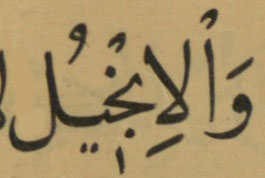 وَالْاِنْجٖيلُ